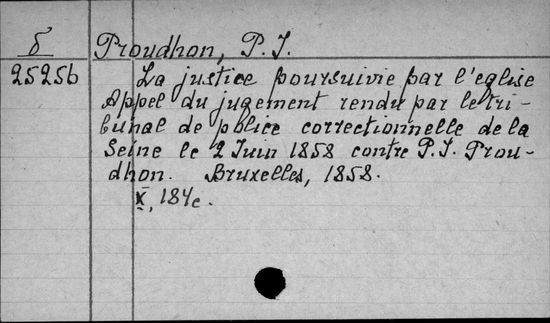 б Proudhon, P. J.
25256 La justice poursuivie par l'eglise
Appel du jugement rendu par le tri-
bunal de police correctionnelle de la
Seine le 2 Juin 1858 contre P. J. Prou-
dhon. Bruxelles, 1858.
X, 184c.